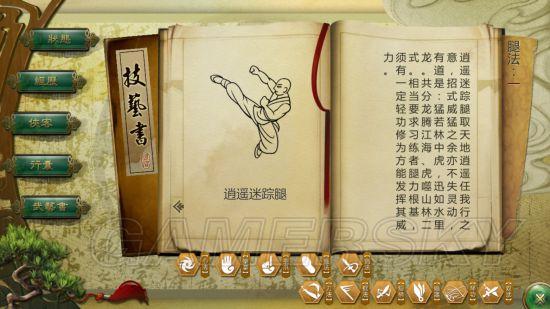 狀態
經歷
俠客
行囊
武藝書
技藝書
逍遥迷踪腿
腿法：一
逍遥迷踪腿取天地逍遥任我行之
意，招式威猛之余亦不失灵动，
有道是：猛若林中虎，迅如水里
龙。共分龙腾江海、虎噬山林二
式。相当要求习练者腿力根基，
须有一定轻功修为方能发挥其威
力。
GAMERSKY